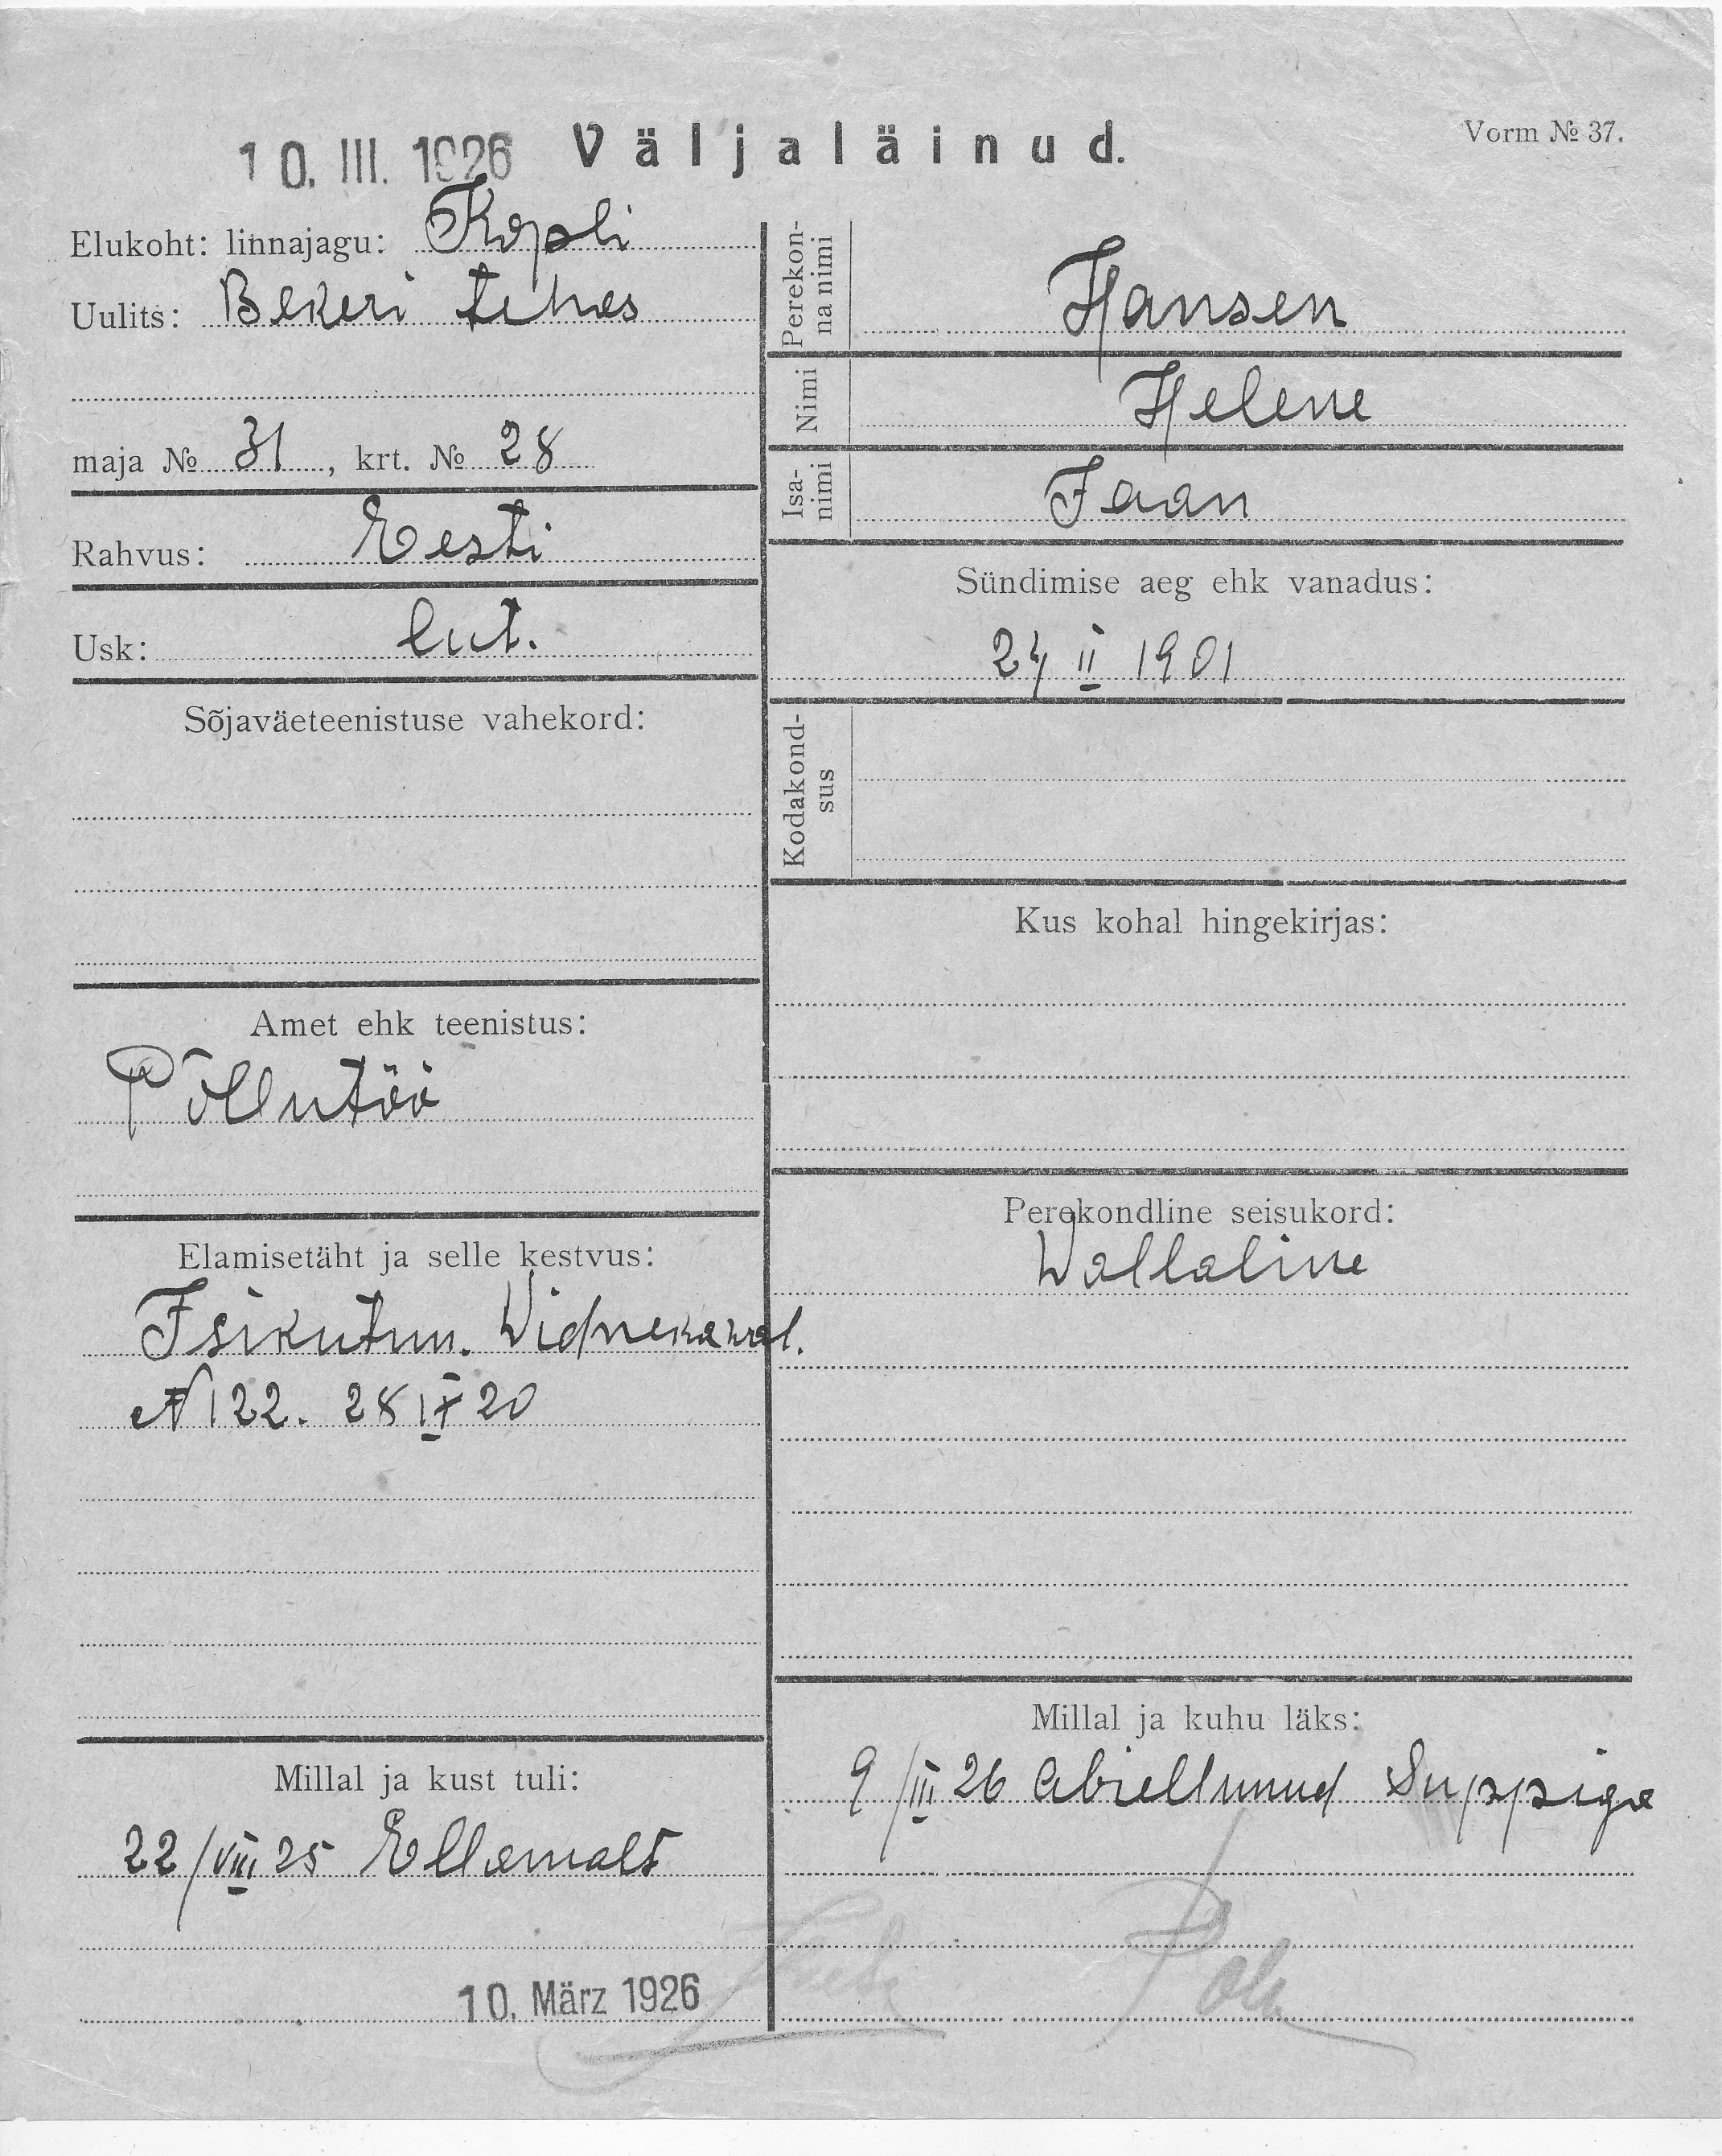 10. III. 1926 Väljaläinud. Vorm № 37.
Elukoht: linnajagu: Kopli
Uulits: Bekeri tehas
maja № 31, krt. № 28
Rahvus: Eesti
Usk: lut.
Sõjaväeteenistuse vahekord:
Amet ehk teenistus:
Põllutöö
Elamisetäht ja selle kestvus:
Isikutun.
N 122. 28 IX 20
Millal ja kust tuli:
22/VIII 25 Ellamalt
10. März 1926
Perekon-
na nimi
Hansen
Nimi Helene
Isa-
nimi
Jaan
Sündimise aeg ehk vanadus:
24 II 1901
Kodakond-
sus
Kus kohal hingekirjas:
Perekondline seisukord:
Wallaline
Millal ja kuhu läks:
9/III 26 abiellunud Suppiga